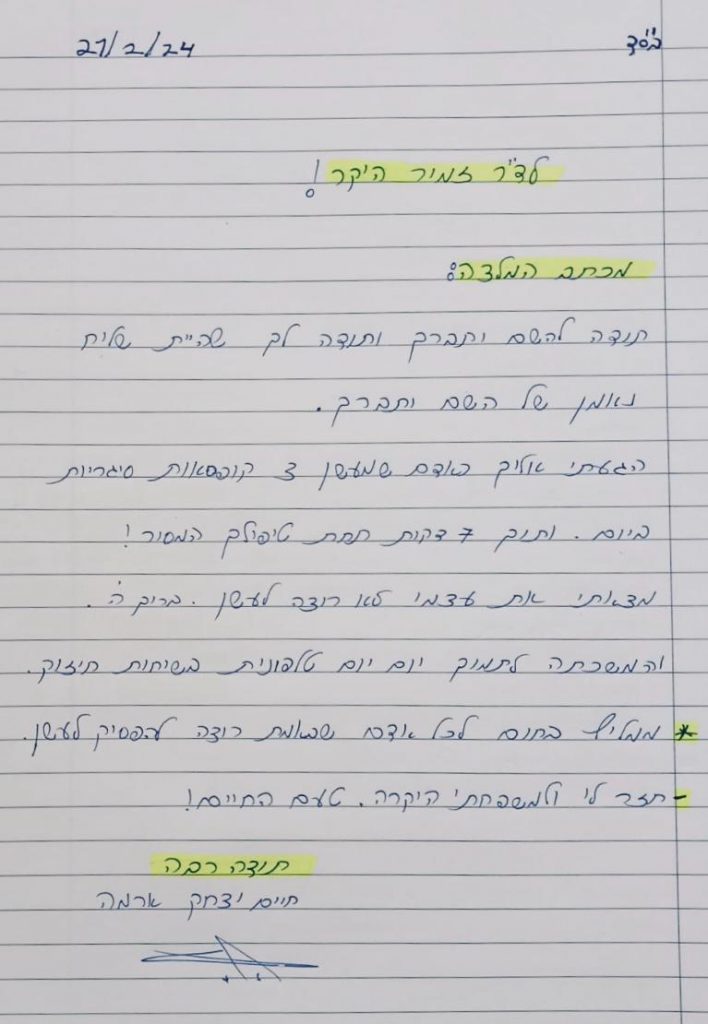 בס"ד
27/2/24
לד"ר זמיר היקר!
מכתב המלצה:
תודה להשם יתברך ותודה לך שהיית שליח
נאמן של השם יתברך.
הגעתי אליך כאדם שמעשן 3 קופסאות סיגריות
ביום. ותוך 7 דקות תחת טיפולך המסור!
מצאותי את עצמי לא רוצה לעשן. בריך ה'.
והמשכתה לתמוך יום יום טלפונית בשיחות חיזוק.
* ממליץ בחום לכל אדם שבאמת רוצה להפסיק לעשן.
- חזר לי ולמשפחתי היקרה. טעם החיים!
תודה רבה
חיים יצחק ארמה